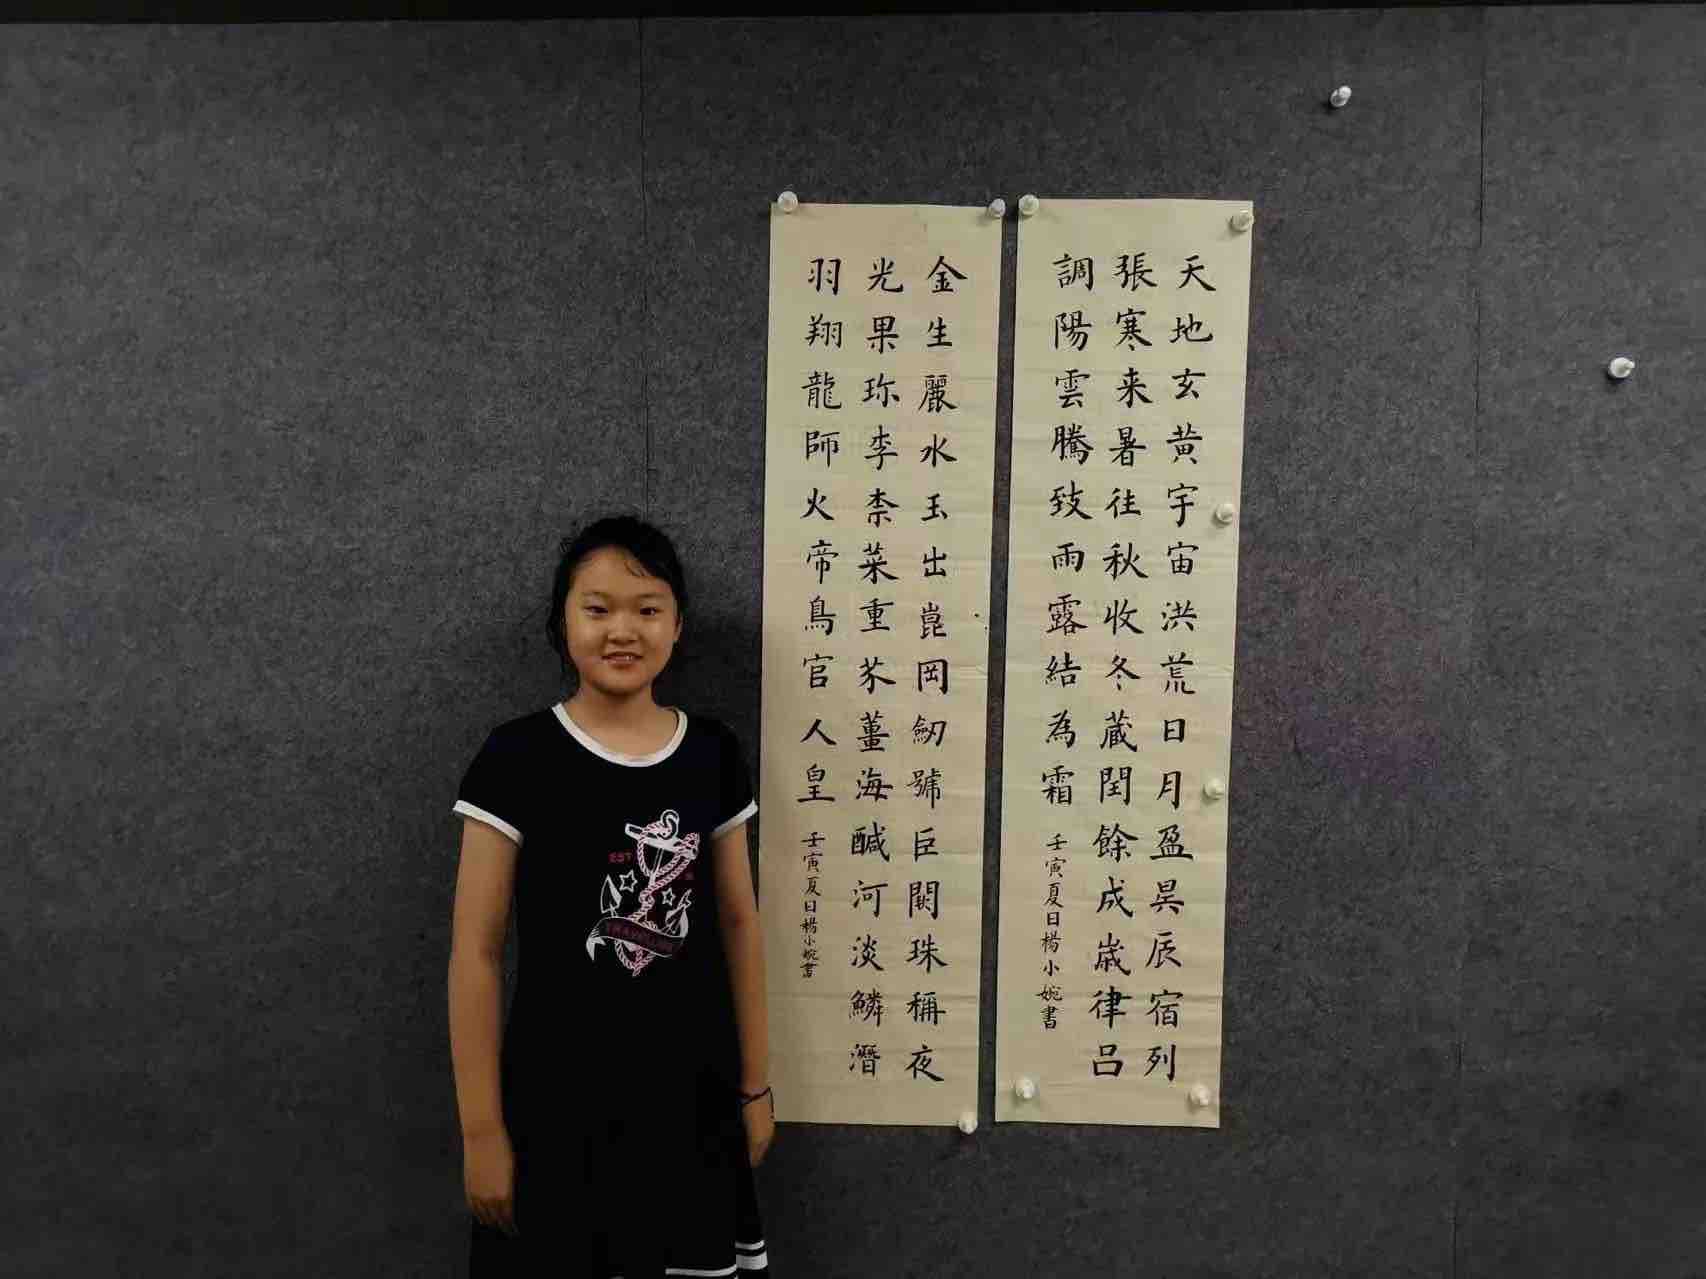 天地玄黃宇宙洪荒日月盈昃辰宿列
張寒来暑往秋收冬蔵閏餘成歲律吕
調陽雲騰致雨露結為霜
壬寅夏日楊小婉書
金生麗水玉出崑岡劒號巨闕珠稱夜
光果珎李柰菜重芥薑海醎河淡鱗潛
羽翔龍師火帝鳥官人皇
壬寅夏日楊小婉書
EST
TRAVELING